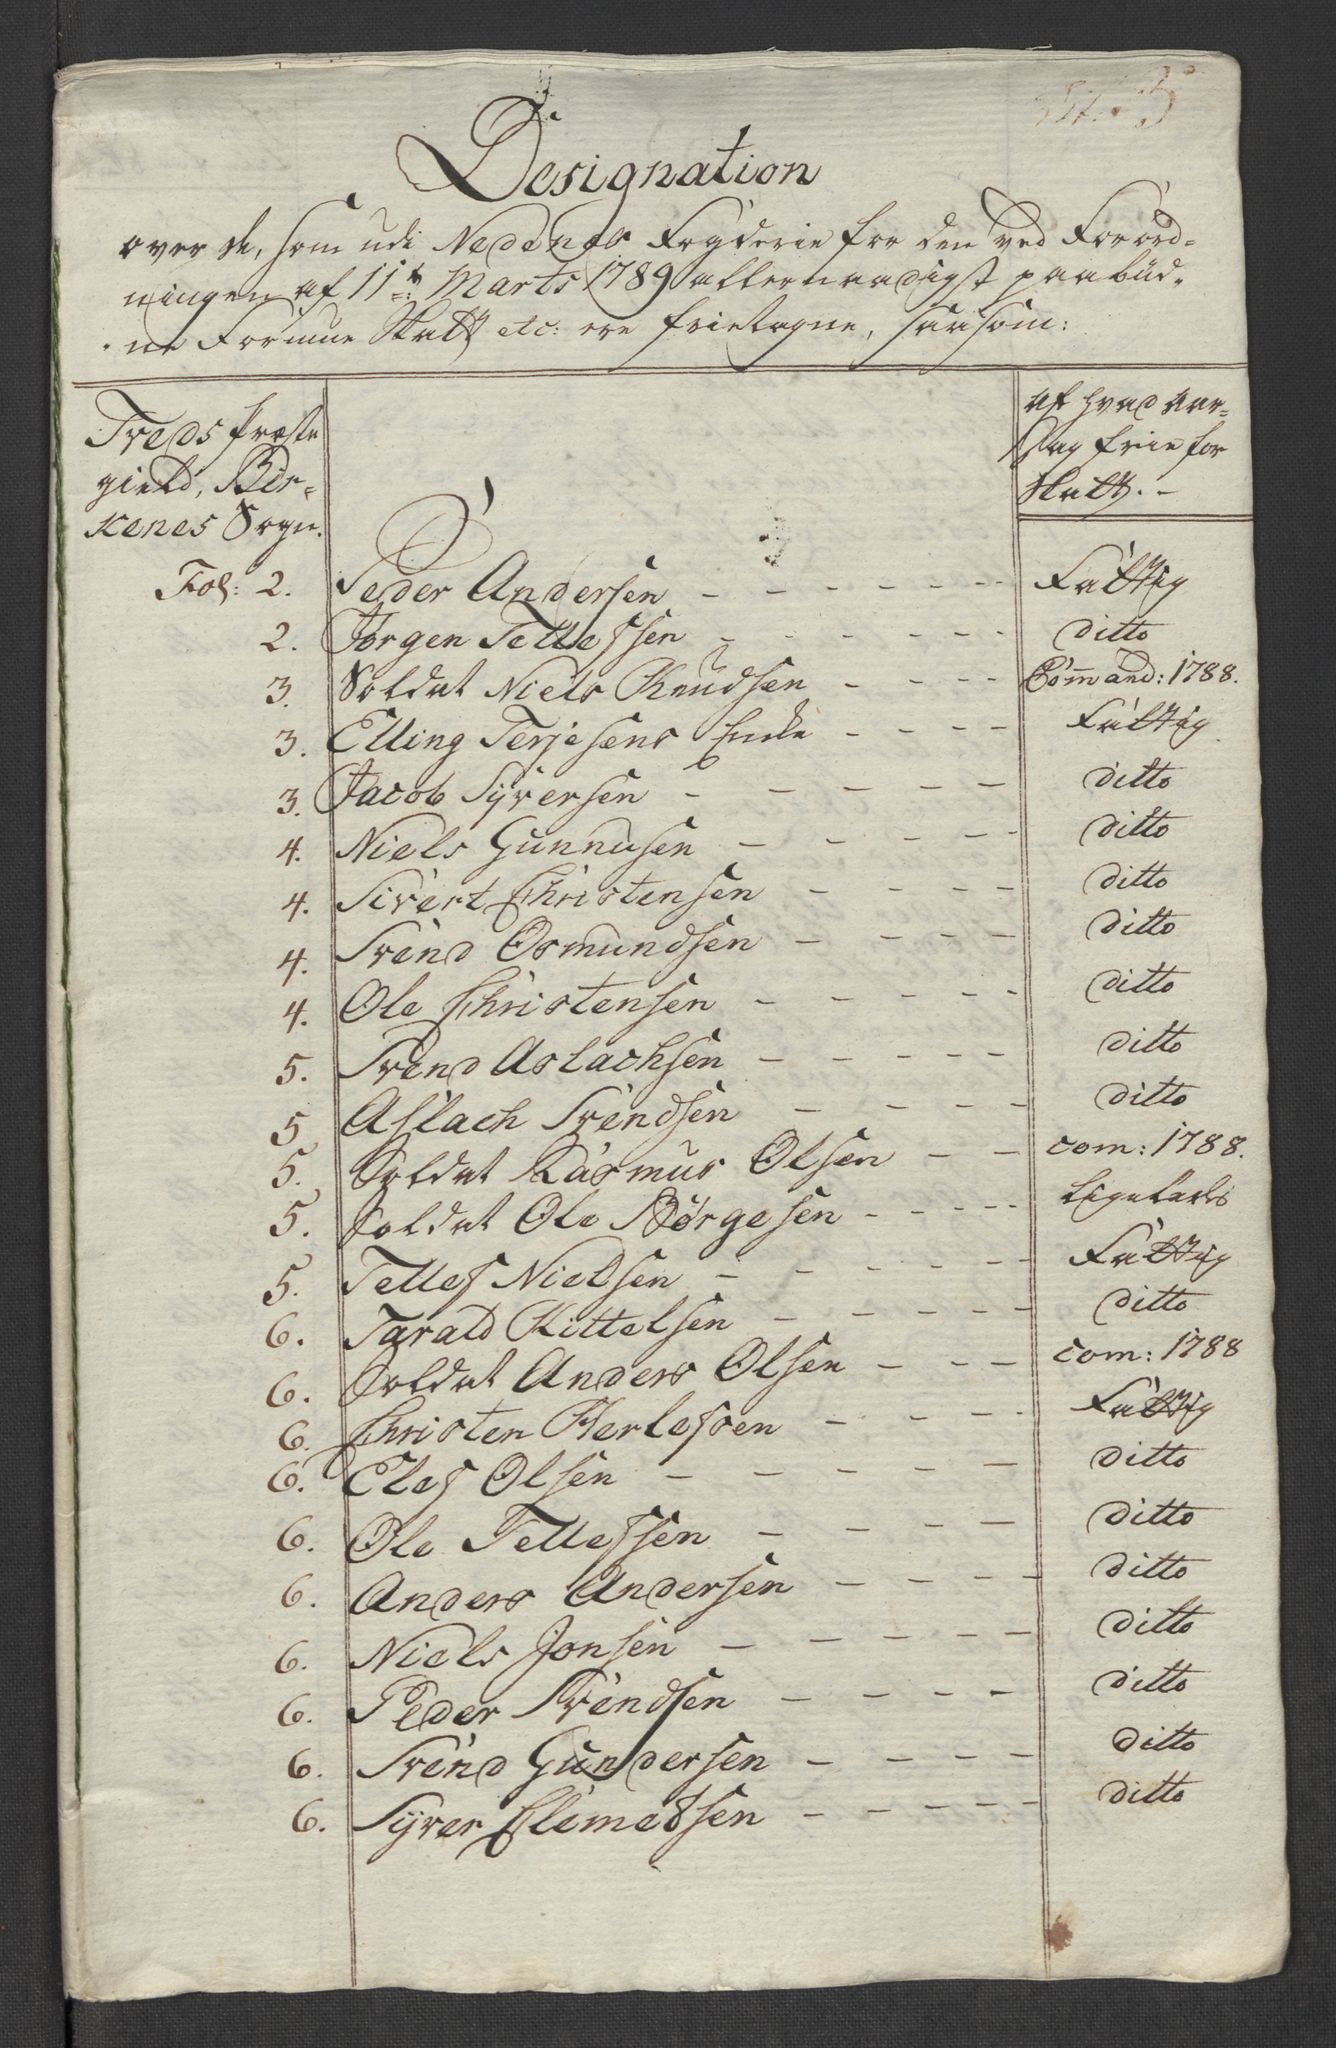 Designation
over de, som udi Nedenes Fogderie for den ved Forord-
ningen af 11te Marts 1789 allernaadigst paabüd-
ne Formue Skatt etc: ere frietagne, saasom:
Treds Præste
gield, Bir-
kenes Sogn.
af hvad aar-
sag frie for
Skatt.-
Fol: 2. Peder Andersen - - - - - - Fattig
2. Jørgen Tellefsen - - - - - - ditto
3. Soldat Niels Knudsen - - - - Command: 1788.
3. Elling Terjesens Encke - - - - Fattig
3. Jacob Syversen - - - - - ditto
4. Niels Gunnusen - - - - ditto
4. Sivert Christensen - - - ditto
4. Svend Osmundsen - - - - ditto
4. Ole Christensen - - - - ditto
5. Svend Aslachsen - - - - ditto
5 Aslach Svendsen - - - - ditto
5. Soldat Rasmus Olsen - - com: 1788.
5. Soldat Ole Børgesen - - - - - ligeledes
5. Tellef Nielsen - - - - - - Fattig
6. Tarald Kittelsen - - - - - ditto
6. Soldat Anders Olsen - - - com: 1788
6. Christen Herlofsen - - - - Fattig
6. Elef Olsen - - - - - ditto
6. Ole Tellefsen - - - - ditto
6. Anders Andersen - - - - ditto
6. Niels Jonsen - - - - - - ditto
6. Peder Svendsen - - - - ditto
6. Svend Gundersen - - - - ditto
6. Syver Clemetsen - - - - - ditto